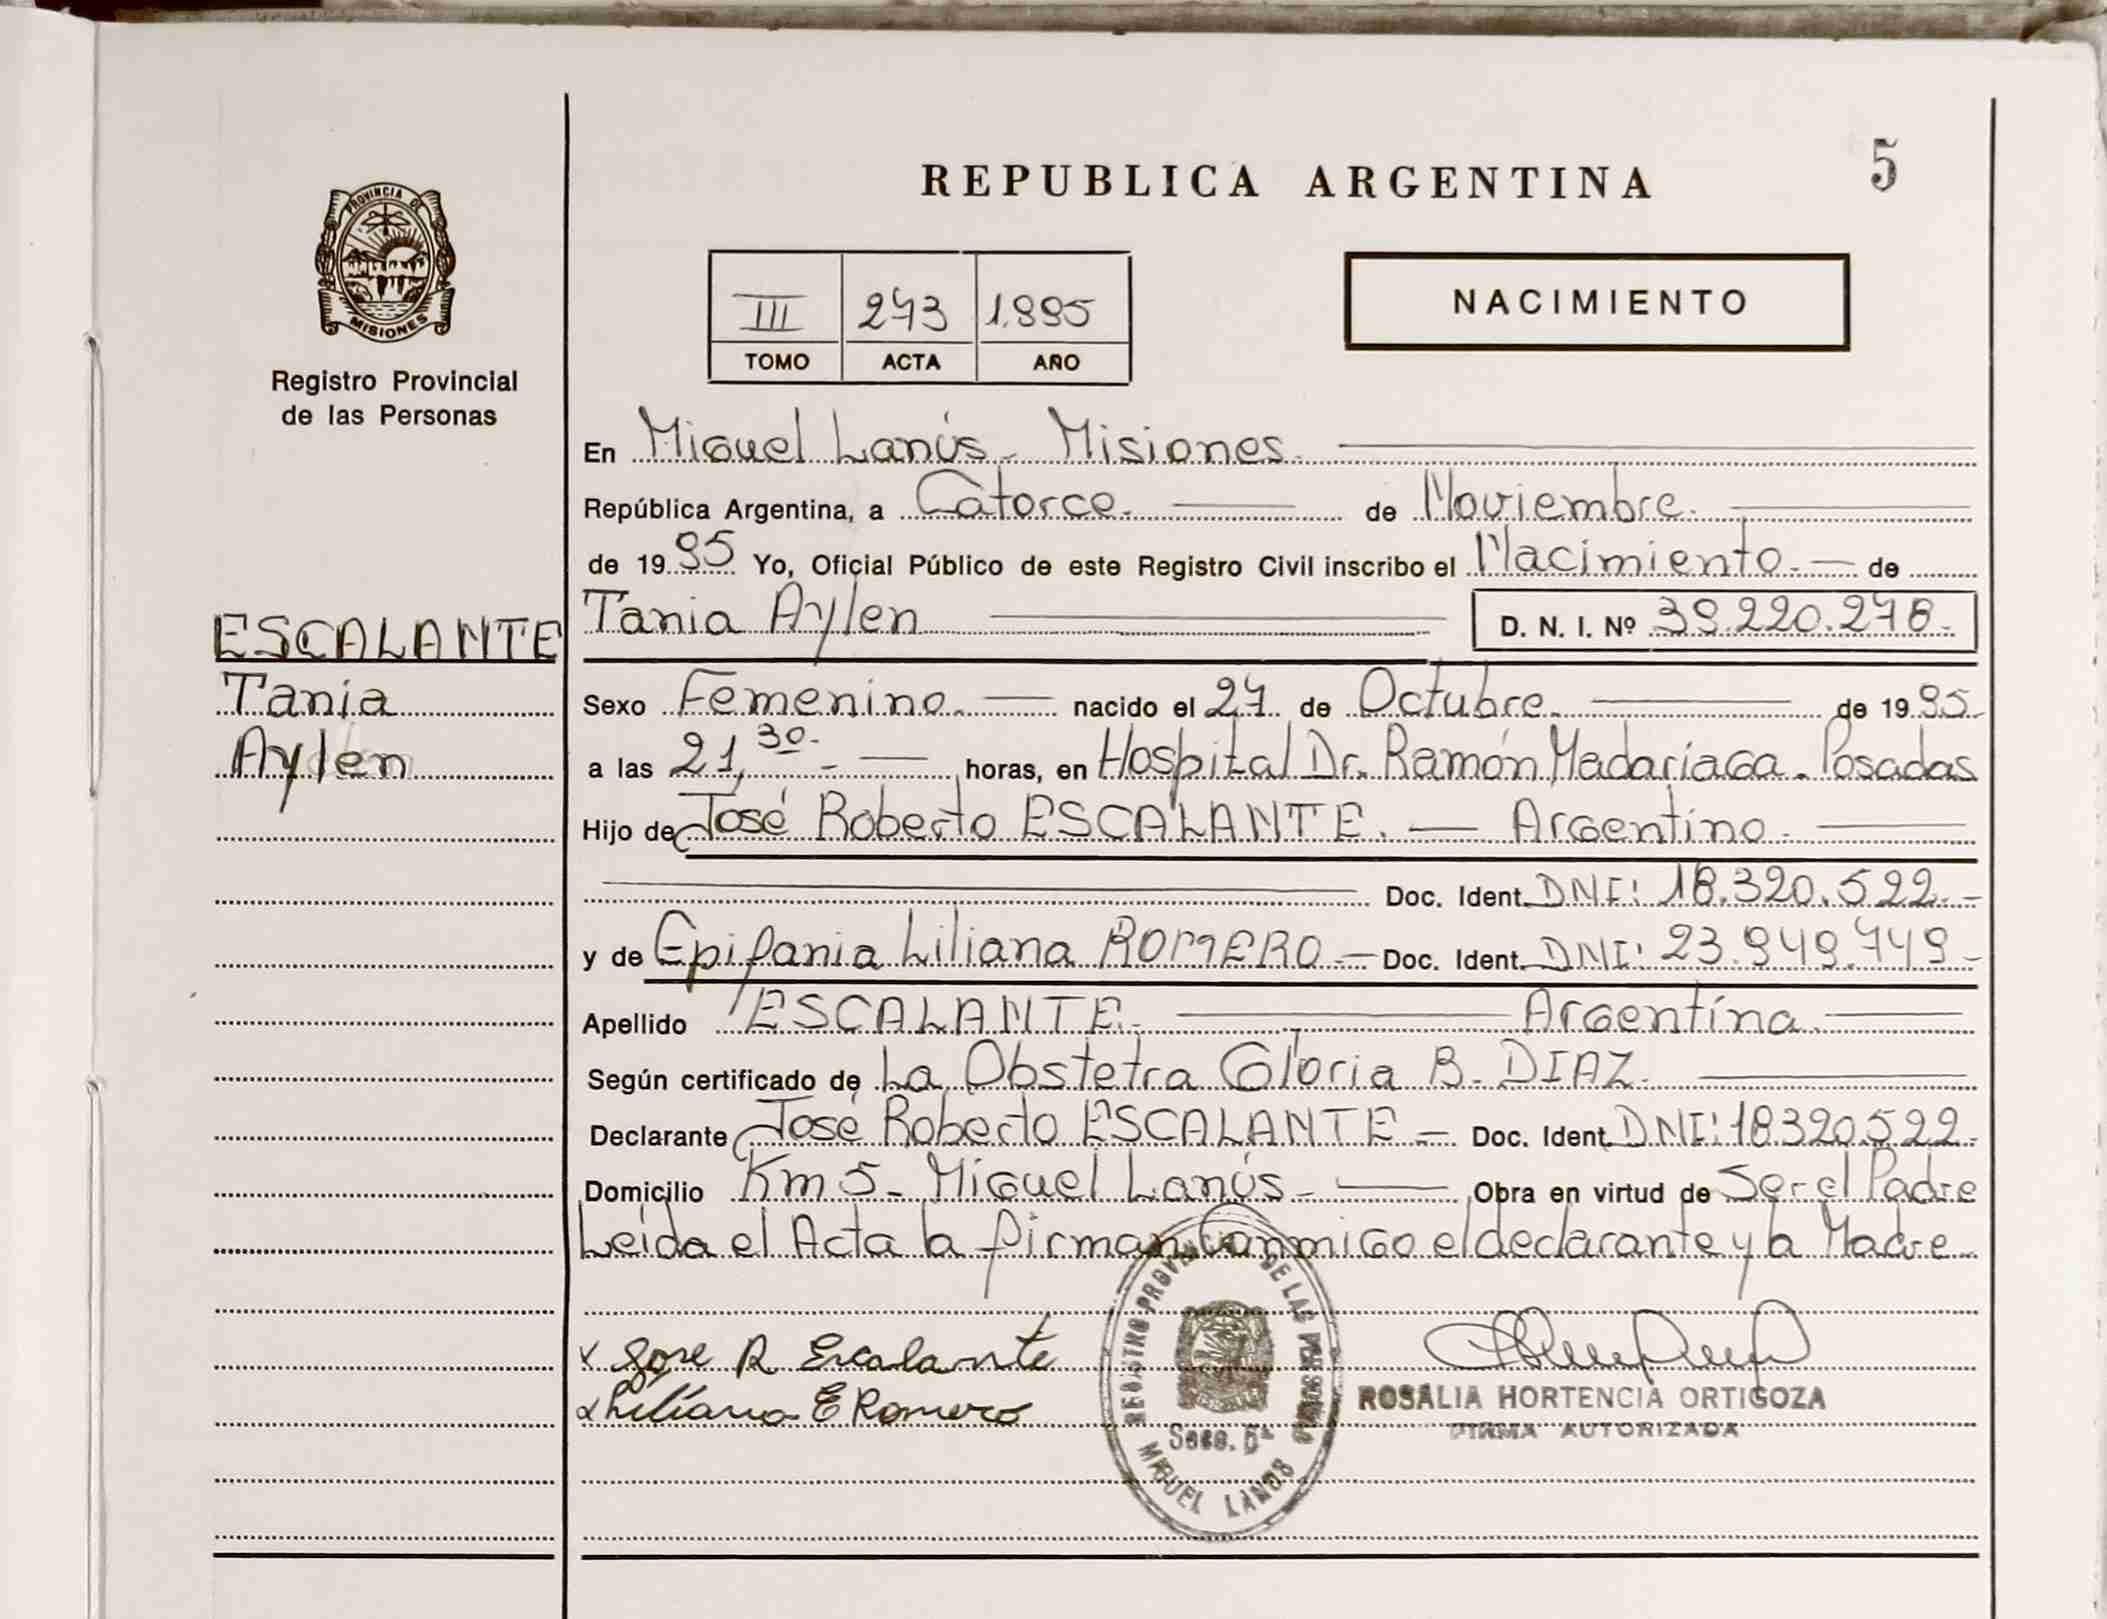 5
REPUBLICA ARGENTINA
PROVINCIA DE
MISIONES
Registro Provincial
de las Personas
III 273 1.995
TOMO ACTA AÑO
NACIMIENTO
En Miguel Lanús - Misiones.
República Argentina, a Catorce. de Noviembre.
de 1995 Yo, Oficial Público de este Registro Civil inscribo el Nacimiento. de
Tania Aylen D. N. I. Nº 39.220.278.
ESCALANTE
Tania
Aylen
Sexo Femenino. nacido el 27 de Octubre. de 1995
a las 21,30 horas, en Hospital Dr. Ramón Madariaga. Posadas
Hijo de José Roberto ESCALANTE. Argentino.
Doc. Ident. DNI: 18.320.522.-
y de Epifania Liliana ROMERO - Doc. Ident. DNI: 23.949.749-
Apellido ESCALANTE. Argentina.
Según certificado de La Obstetra Gloria B. DIAZ.
Declarante José Roberto ESCALANTE - Doc. Ident. DNI: 18.320.522.
Domicilio Km 5 - Miguel Lanús - Obra en virtud de Ser el Padre
Leída el Acta la firman Conmigo el declarante y la Madre
x Jose R Escalante
x Liliana E Romero
REGISTRO PROVINCIAL DE LAS PERSONAS
Secc. 5ª
MIGUEL LANUS
ROSALIA HORTENCIA ORTIGOZA
FIRMA AUTORIZADA